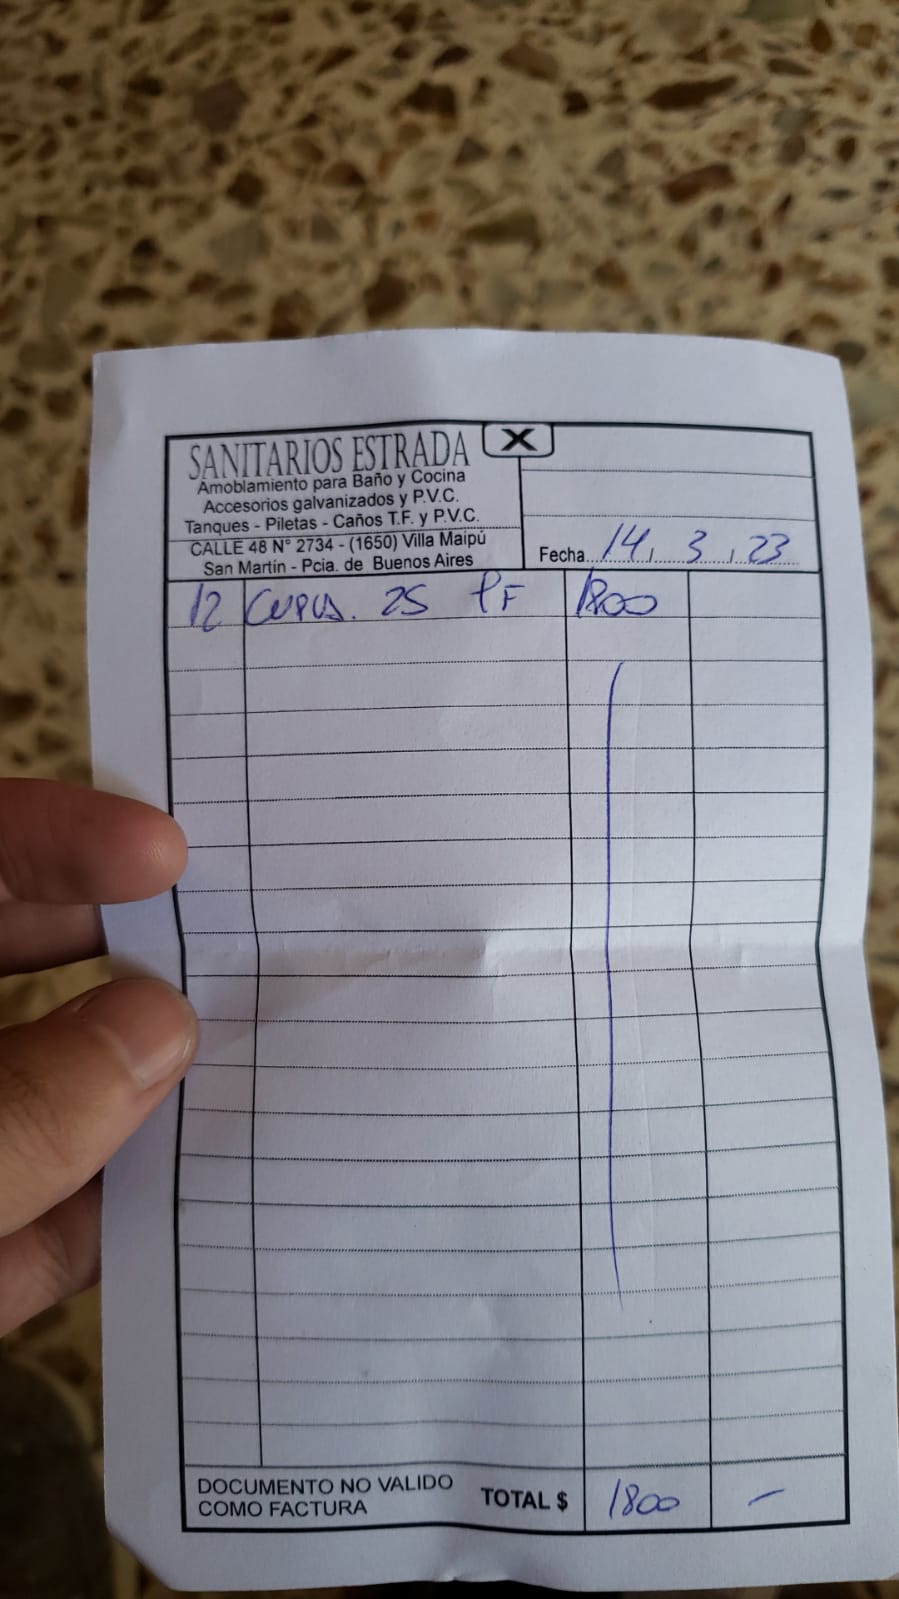 SANITARIOS ESTRADA
X
Amoblamiento para Baño y Cocina
Accesorios galvanizados y P.V.C.
Tanques - Piletas - Caños T.F. y P.V.C.
CALLE 48 N° 2734 - (1650) Villa Maipú
San Martín - Pcia. de Buenos Aires
Fecha 14, 3, 23
12 25 PF 1800
DOCUMENTO NO VALIDO
COMO FACTURA
TOTAL $ 1800 -